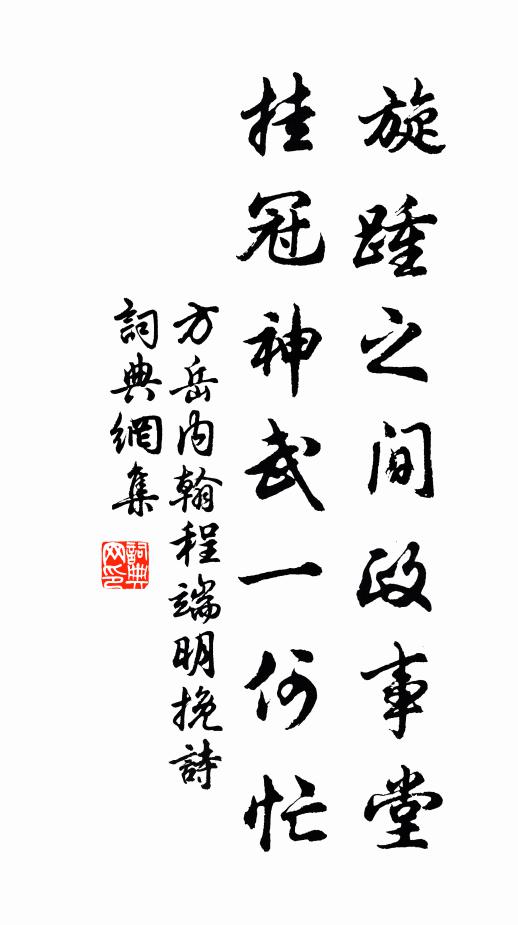 旋踵之间政事堂
挂冠神武一何忙
方岳内翰程端明挽詩
詞典網集
詞典网印